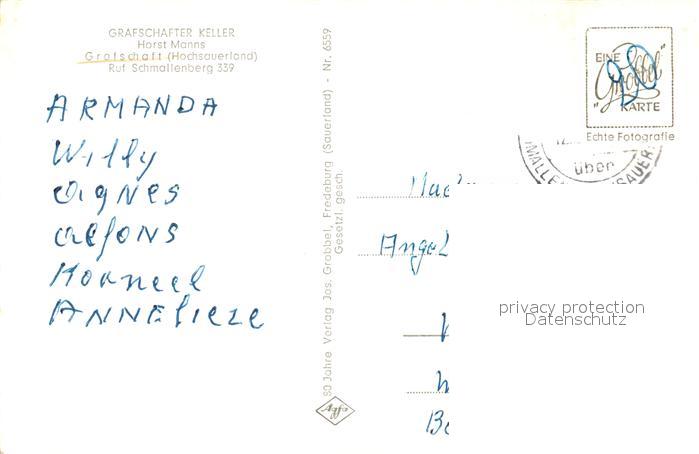 GRAFSCHAFTER KELLER
Horst Manns
Grafschaft (Hochsauerland)
Ruf Schmallenberg 339
ARMANDA
Willy
Agnes
Alfons
Korneel
ANNElieze
50 Jahre Verlag Jos. Grobbel, Fredeburg (Sauerland) - Nr. 6559
Gesetzl. gesch.
Agfa
EINE
"Grobbel"
KARTE
Echte Fotografie
über
privacy protection
Datenschutz